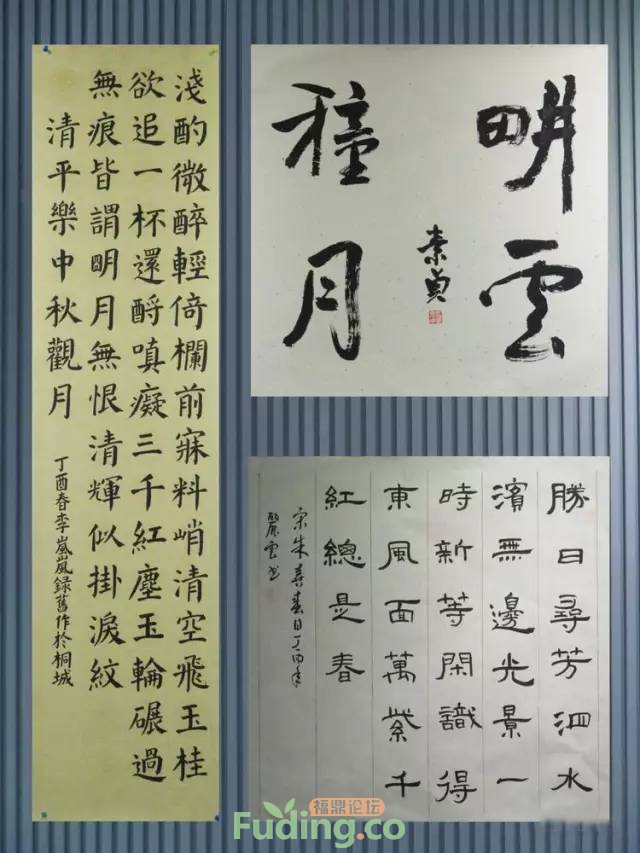 淺酌微醉輕倚欄前寐料峭清空飛玉桂
欲追一杯還酹嗔癡三千紅塵玉輪碾過
無痕皆謂明月無恨清輝似掛淚紋
清平樂中秋觀月
丁酉春李嵐嵐録舊作於桐城
畊雲
種月
素貞
勝日尋芳泗水
濱無邊光景一
時新等閑識得
東風面萬紫千
紅總是春
宋朱熹春日丁酉年
麗雲书
福鼎论坛
Fuding.co